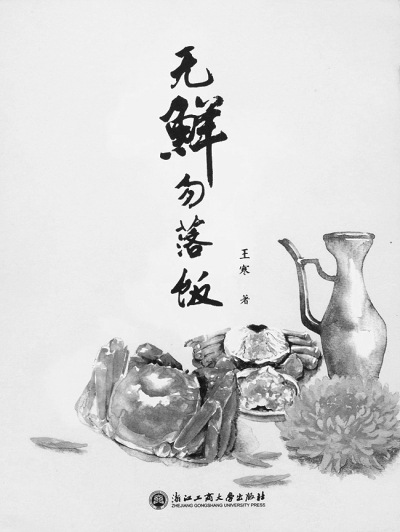 无鲜勿落饭
王寒 著
浙江工商大学出版社
ZHEJIANG GONGSHANG UNIVERSITY PRESS